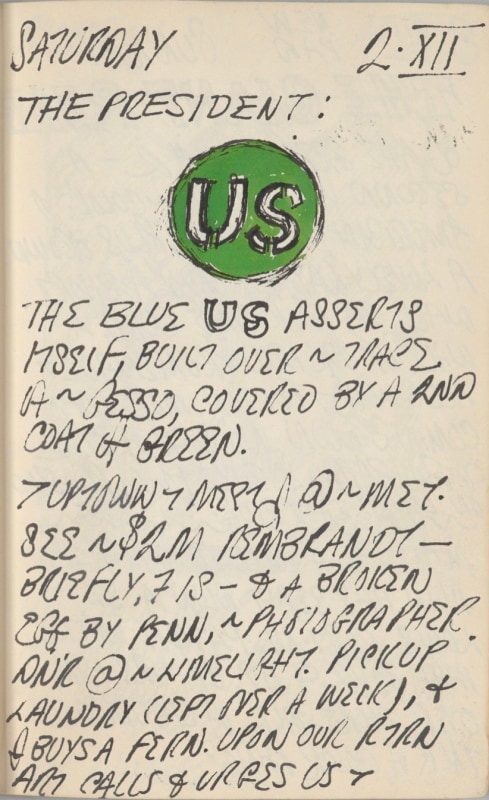 SATURDAY 2·XII
THE PRESIDENT:
US
THE BLUE US ASSERTS
ITSELF, BUILT OVER ~ TRACE
OF ~ GESSO, COVERED BY A 2ND
COAT OF GREEN.
UPTOWN MEET @ ~ MET.
SEE ~ $2M REMBRANDT —
BRIEFLY, IS — & A BROKEN
EGG BY PENN, ~ PHOTOGRAPHER.
DN'R @ ~ LIMELIGHT. PICK UP
LAUNDRY (LEFT OVER A WEEK), &
BUYS A FERN. UPON OUR RTRN
ART CALLS & URGES US